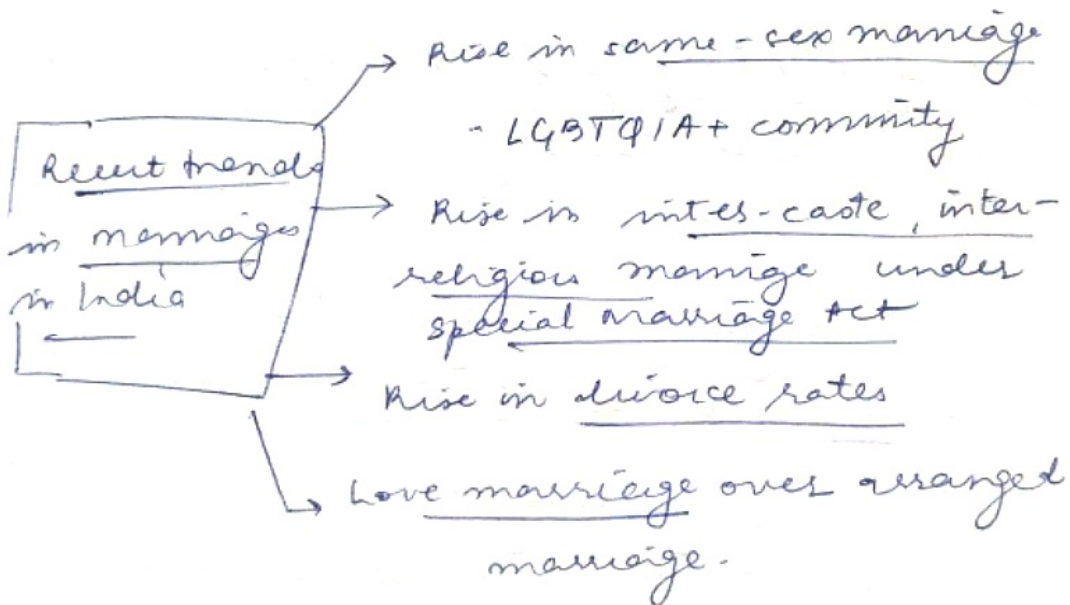 Recent trends
in marriages
in India
Rise in same-sex marriage
- LGBTQIA+ community
Rise in inter-caste, inter-
religious marriage under
Special Marriage Act
Rise in divorce rates
Love marriage over arranged
marriage.